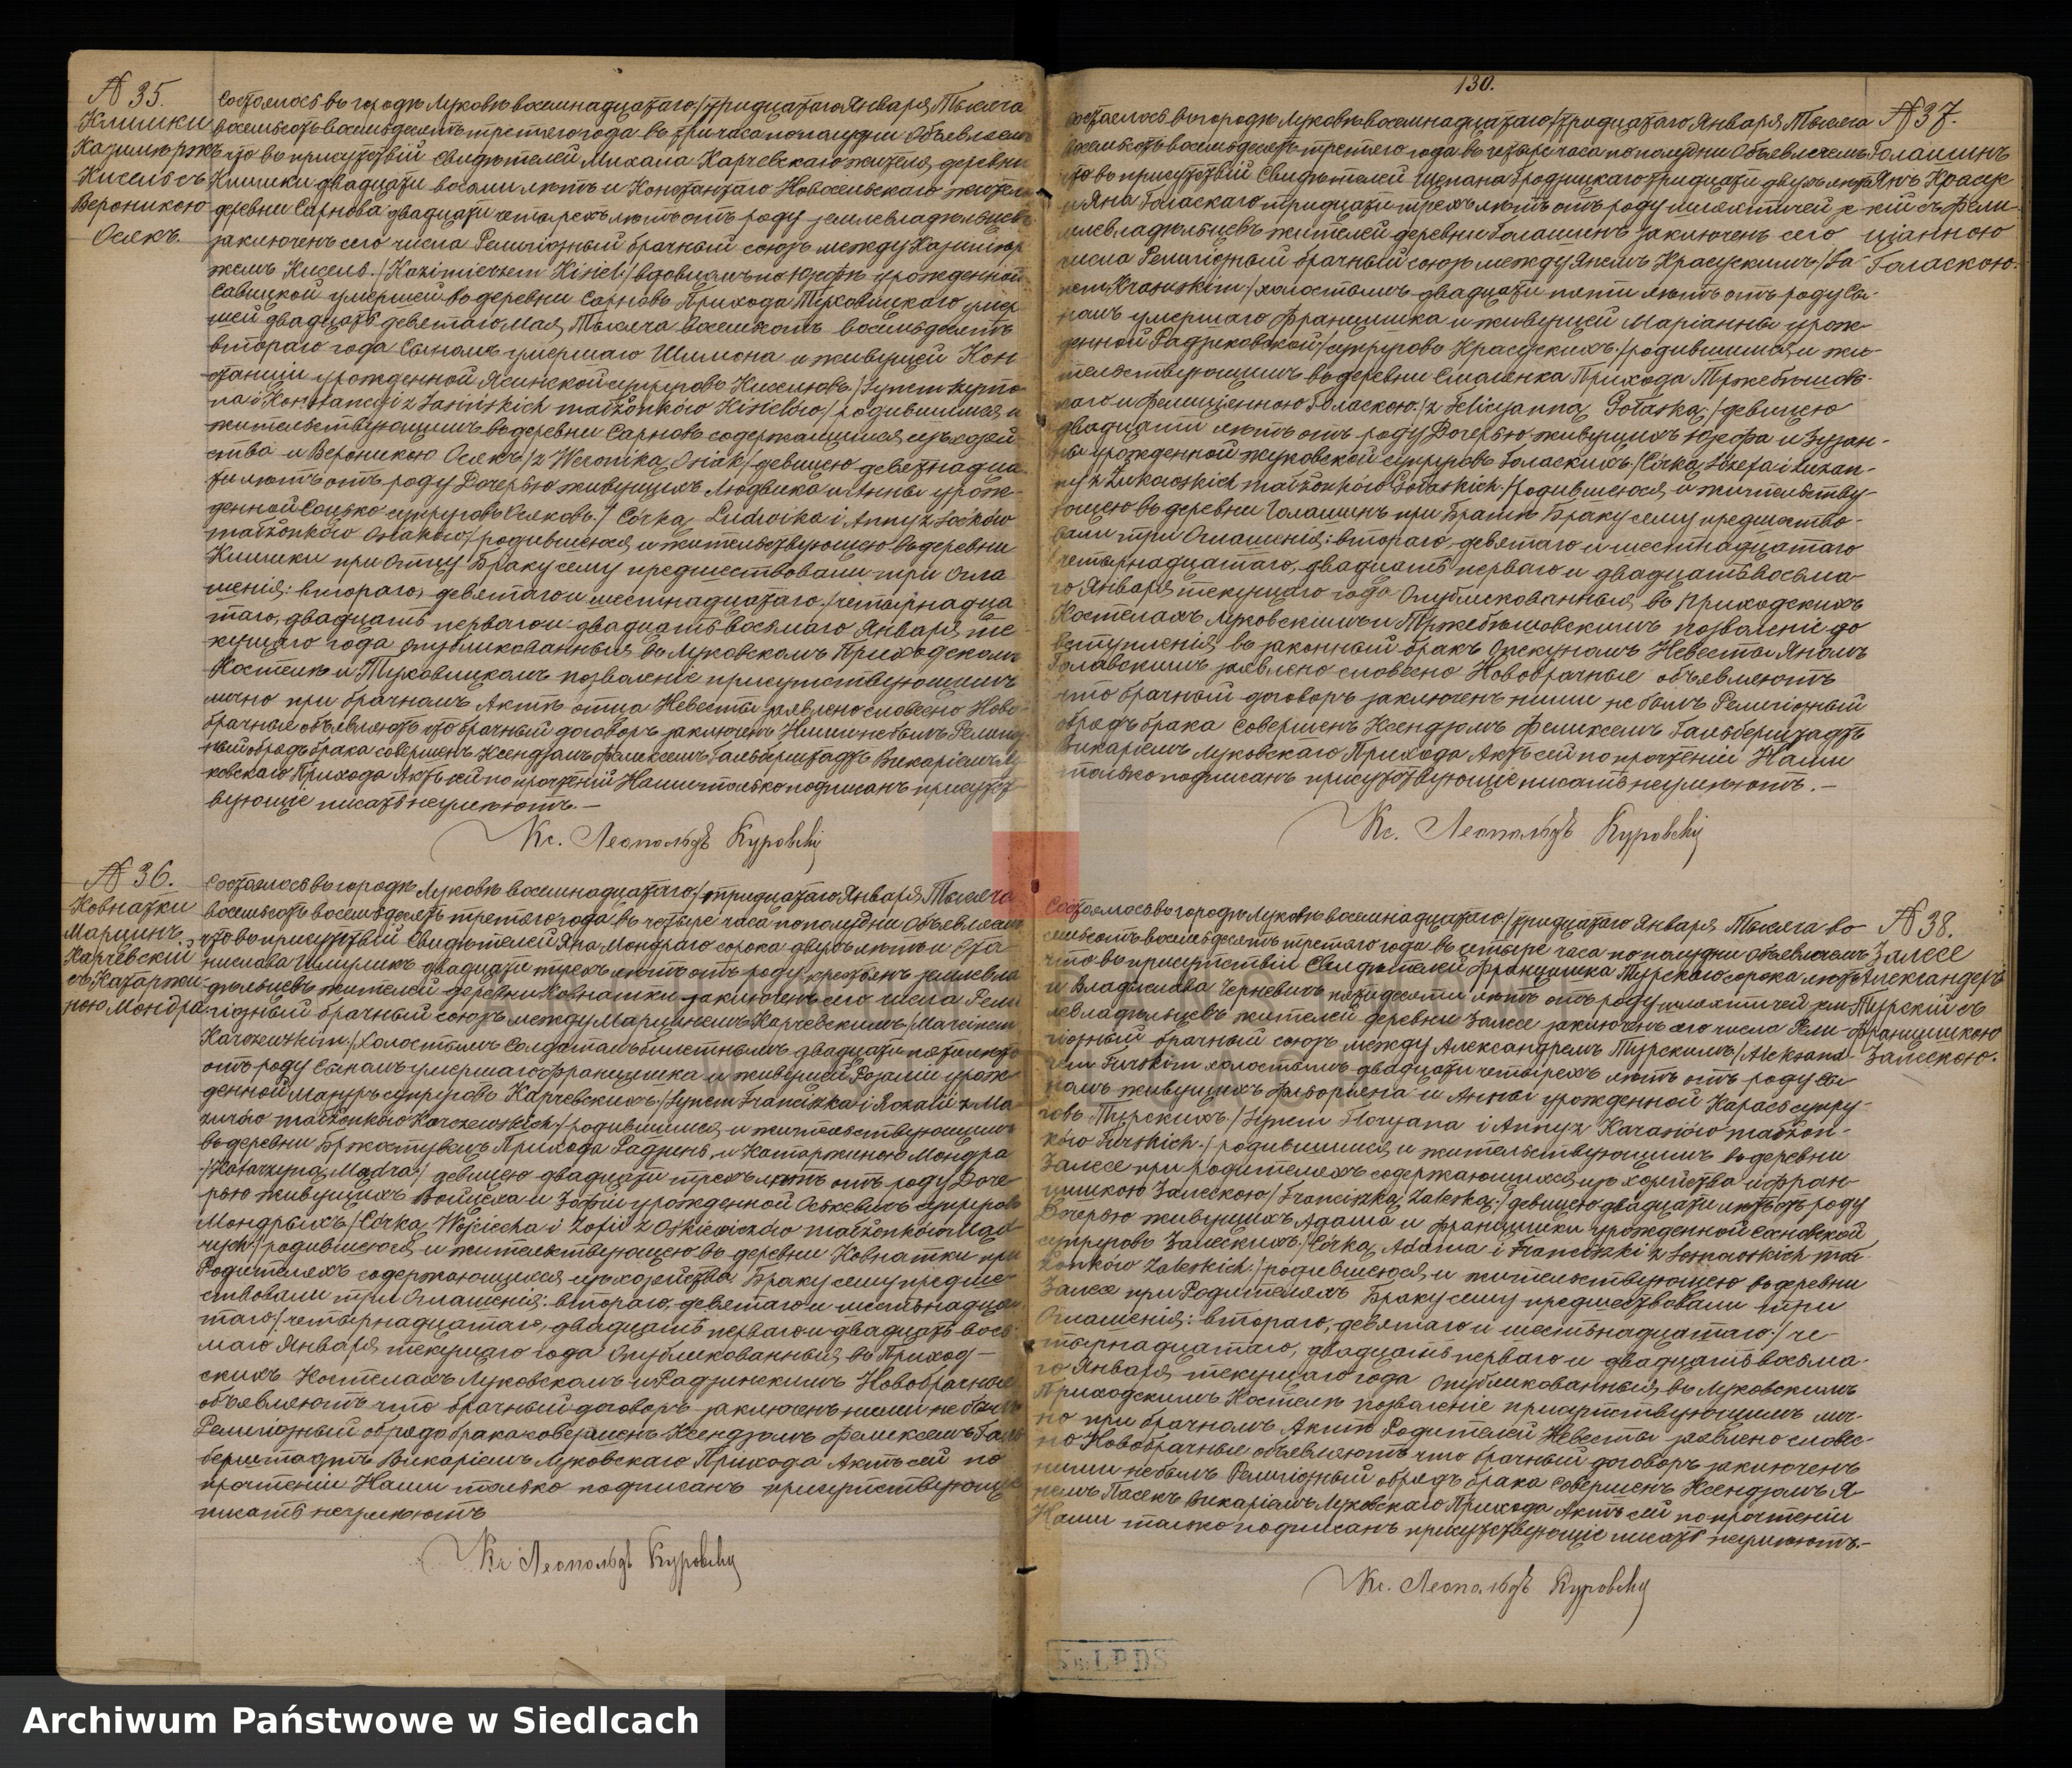 № 35.
Клишки
Казимержъ
Кисель съ
Вероникою
Осякъ.
Состоялось въ городѣ Луковѣ восемнадцатаго /тридцатаго Января Тысяча
восемьсотъ восемьдесятъ третьяго года въ три часа пополудни Объявляемъ
что въ присутствіи Свидѣтелей Михала Карчевскаго жителя деревни
Клишки двадцати восьми лѣтъ и Константаго Новосельскаго жителя
деревни Сарнова двадцати четырехъ лѣтъ отъ роду землевладѣльцевъ
заключенъ сего числа Религіозный брачный союзъ между Казимір-
жемъ Кисель /Kazimierzem Kisiel/ вдовцемъ по Юзефѣ урожденной
Савицкой умершей въ деревни Сарновъ Прихода Туховицкаго умер-
шей двадцать девятаго Мая Тысяча восемьсотъ восемьдесятъ
втораго года Сыномъ умершаго Шимона и живущей Кон-
станціи урожденной Ясинской супруговъ Киселювъ /Synem Szymo-
na i Konstancyi z Jasińskich małżonków Kisielów/ родившимся и
жительствующимъ въ деревни Сарновъ содержащимся изъ хозяй-
ства и Вероникою Осякъ /z Weroniką Osiak/ девицею девятнадца-
ти лѣтъ отъ роду Дочерью живущихъ Людвика и Анны урож-
денной Соцько супруговъ Осяковъ / Córką Ludwika i Anny z Soćków
małżonków Osiaków/ родившеюся и жительствующею въ деревни
Клишки при Отцу Браку сему предшествовали три Огла-
шенія: втораго, девятаго и шестнадцатаго /четырнадца-
таго, двадцать перваго и двадцать восьмаго Января те-
кущаго года опубликованныя въ Луковскомъ Приходскомъ
Костелѣ и Туховицкомъ позволеніе присутствующимъ
лично при брачномъ Актѣ отца Невесты заявлено словесно Ново-
брачные объявляютъ что брачный договоръ заключенъ Ними небылъ Религіоз-
ный обрядъ брака совершенъ Ксендзомъ Феликсемъ Гальберштадтъ Викаріемъ Лу-
ковскаго Прихода Актъ сей по прочтеніи Нами только подписанъ присутст-
вующіе писать неумѣютъ.—
Кс. Леопольдъ Куровскій
№ 36.
Ковнатки
Марцинъ
Карчевскій
съ Катаржи-
ною Мондра.
Состоялось въ городѣ Луковѣ восемнадцатаго /тридцатаго Января Тысяча
восемьсотъ восемьдесятъ третьяго года въ четыре часа пополудни Объявляемъ
что въ присутствіи Свидѣтелей Яна Мондраго сорока двухъ лѣтъ и Ста-
нислава Шмуликъ двадцати трехъ лѣтъ отъ роду крестьянъ землевла-
дѣльцевъ жителей деревни Ковнатки заключенъ сего числа Рели-
гіозный брачный союзъ между Марцинемъ Карчевскимъ /Marcinem
Karczewskim/ Холостымъ Солдатомъ билетнымъ двадцати пяти лѣтъ
отъ роду Сыномъ умершаго Францишка и живущей Розаліи урож-
денной Мазуръ супруговъ Карчевскихъ /Synem Franciszka i Rozalii z Ma-
zurów małżonków Karczewskich/ родившимся и жительствующимъ
въ деревни Бржостувецъ Прихода Радзынь и Катаржиною Мондра
/Katarzyną Mądrą/ девицею двадцати трехъ лѣтъ отъ роду Доче-
рью живущихъ Войцеха и Зофіи урожденной Оскевичъ супруговъ
Мондрыхъ /Córką Wojciecha i Zofii z Oskiewiczów małżonków Mąd-
rych/ родившеюся и жительствующею въ деревни Ковнатки при
Родителяхъ содержающихся изъ хозяйства Браку сему предше-
ствовали три Оглашенія: втораго, девятаго и шестьнадца-
таго /четырнадцатаго, двадцать перваго и двадцать вось-
маго Января текущаго года Опубликованныя въ Приход-
скихъ Костелахъ Луковскомъ и Радзинскимъ Новобрачные
объявляютъ что брачный договоръ заключенъ ними не былъ
Религіозный обрядъ брака совершенъ Ксендзомъ Феликсемъ Галь-
берштадтъ Викаріемъ Луковскаго Прихода Актъ сей по
прочтеніи Нами только подписанъ присутствующіе
писать неумѣютъ
Кс Леопольдъ Куровскій
130.
№ 37.
Голашинъ
Янъ Красус-
кій съ Фели-
ціанною
Голаскою.
Состоялось въ городѣ Луковѣ восемнадцатаго /тридцатаго Января Тысяча
восемьсотъ восемьдесятъ третьяго года въ четыре часа пополудни Объявляемъ
что въ присутствіи Свидѣтелей Щепана Бродзицкаго тридцати двухъ лѣтъ
и Яна Голаскаго тридцати трехъ лѣтъ отъ роду шляхтичей зе-
млевладѣльцевъ жителей деревни Голашинъ заключенъ сего
числа Религіозный брачный союзъ между Янемъ Красускимъ /Ja-
nem Krasuskim/ холостымъ двадцати пяти лѣтъ отъ роду Сы-
номъ умершаго Францишка и живущей Маріанны урож-
денной Радзиковской /супруговъ Красускихъ/ родившимся и жи-
тельствующимъ въ деревни Смоленка Прихода Тржебѣшовс-
каго и Фелиціанною Голаскою /z Felicyanną Gołaską/ девицею
двадцати лѣтъ отъ роду Дочерью живущихъ Юзефа и Зузан-
ны урожденной Жуковской супруговъ Голаскихъ /Córką Józefa i Zuzan-
ny z Żukowskich małżonków Gołaskich/ родившеюся и жительству-
ющею въ деревни Голашинъ при Братѣ Браку сему предшество-
вали три Оглашенія: втораго, девятаго и шестнадцатаго
/четырнадцатаго, двадцать перваго и двадцать восьма-
го Января текущаго года Опубликованныя въ Приходскихъ
Костелахъ Луковскимъ и Тржебѣшовскимъ позволеніе до
вступленія въ законный бракъ Опекуномъ Невесты Яномъ
Голавскимъ заявлено словесно Новобрачные объявляютъ
что брачный договоръ заключенъ ними не былъ Религіозный
обрядъ брака Совершенъ Ксендзомъ Феликсемъ Гальберштадтъ
Викаріемъ Луковскаго Прихода Актъ сей по прочтеніи Нами
только подписанъ присутствующіе писать неумѣютъ.—
Кс. Леопольдъ Куровскій
№ 38.
Залесе
Александеръ
Турскій съ
Францишкою
Залескою.
Состоялось въ городѣ Луковѣ восемнадцатаго /тридцатаго Января Тысяча во-
семьсотъ восемьдесятъ третьяго года въ четыре часа пополудни Объявляемъ
что въ присутствіи Свидѣтелей Францишка Турскаго сорока лѣтъ
и Владислава Черневичъ пятидесяти лѣтъ отъ роду шляхтичей зем-
левладѣльцевъ жителей деревни Залесе заключенъ сего числа Рели-
гіозный брачный союзъ между Александремъ Турскимъ /Aleksand-
rem Turskim холостымъ двадцати четырехъ лѣтъ отъ роду Сы-
номъ живущихъ Флоріяна и Анны урожденной Карась супру-
говъ Турскихъ /Synem Floryana i Anny z Karasiów małżon-
ków Turskich/ родившимся и жительствующимъ въ деревни
Залесе при родителяхъ содержающимся изъ хозяйства и Фран-
цишкою Залескою /Franciszką Zaleską/ девицею двадцати лѣтъ отъ роду
Дочерью живущихъ Адама и Францишки урожденной Сосновской
супруговъ Залескихъ /Córką Adama i Franciszki z Sosnowskich mał-
żonków Zaleskich/ родившеюся и жительствующею въ деревни
Залесе при Родителяхъ Браку сему предшествовали три
Оглашенія: втораго, девятаго и шестьнадцатаго / че-
тырнадцатаго, двадцать перваго и двадцать восьма-
го Января текущаго года Опубликованныя въ Луковскимъ
Приходскимъ Костелѣ позволеніе присутствующимъ лич-
но при брачномъ Актѣ Родителей Невесты заявлено словес-
но Новобрачные объявляютъ что брачный договоръ заключенъ
ними небылъ Религіозный обрядъ брака Совершенъ Ксендзомъ Я-
немъ Пасекъ Викаріемъ Луковскаго Прихода Актъ сей по прочтеніи
Нами только подписанъ присутствующіе писать неумѣютъ.—
Кс. Леопольдъ Куровскій
Archiwum Państwowe w Siedlcach